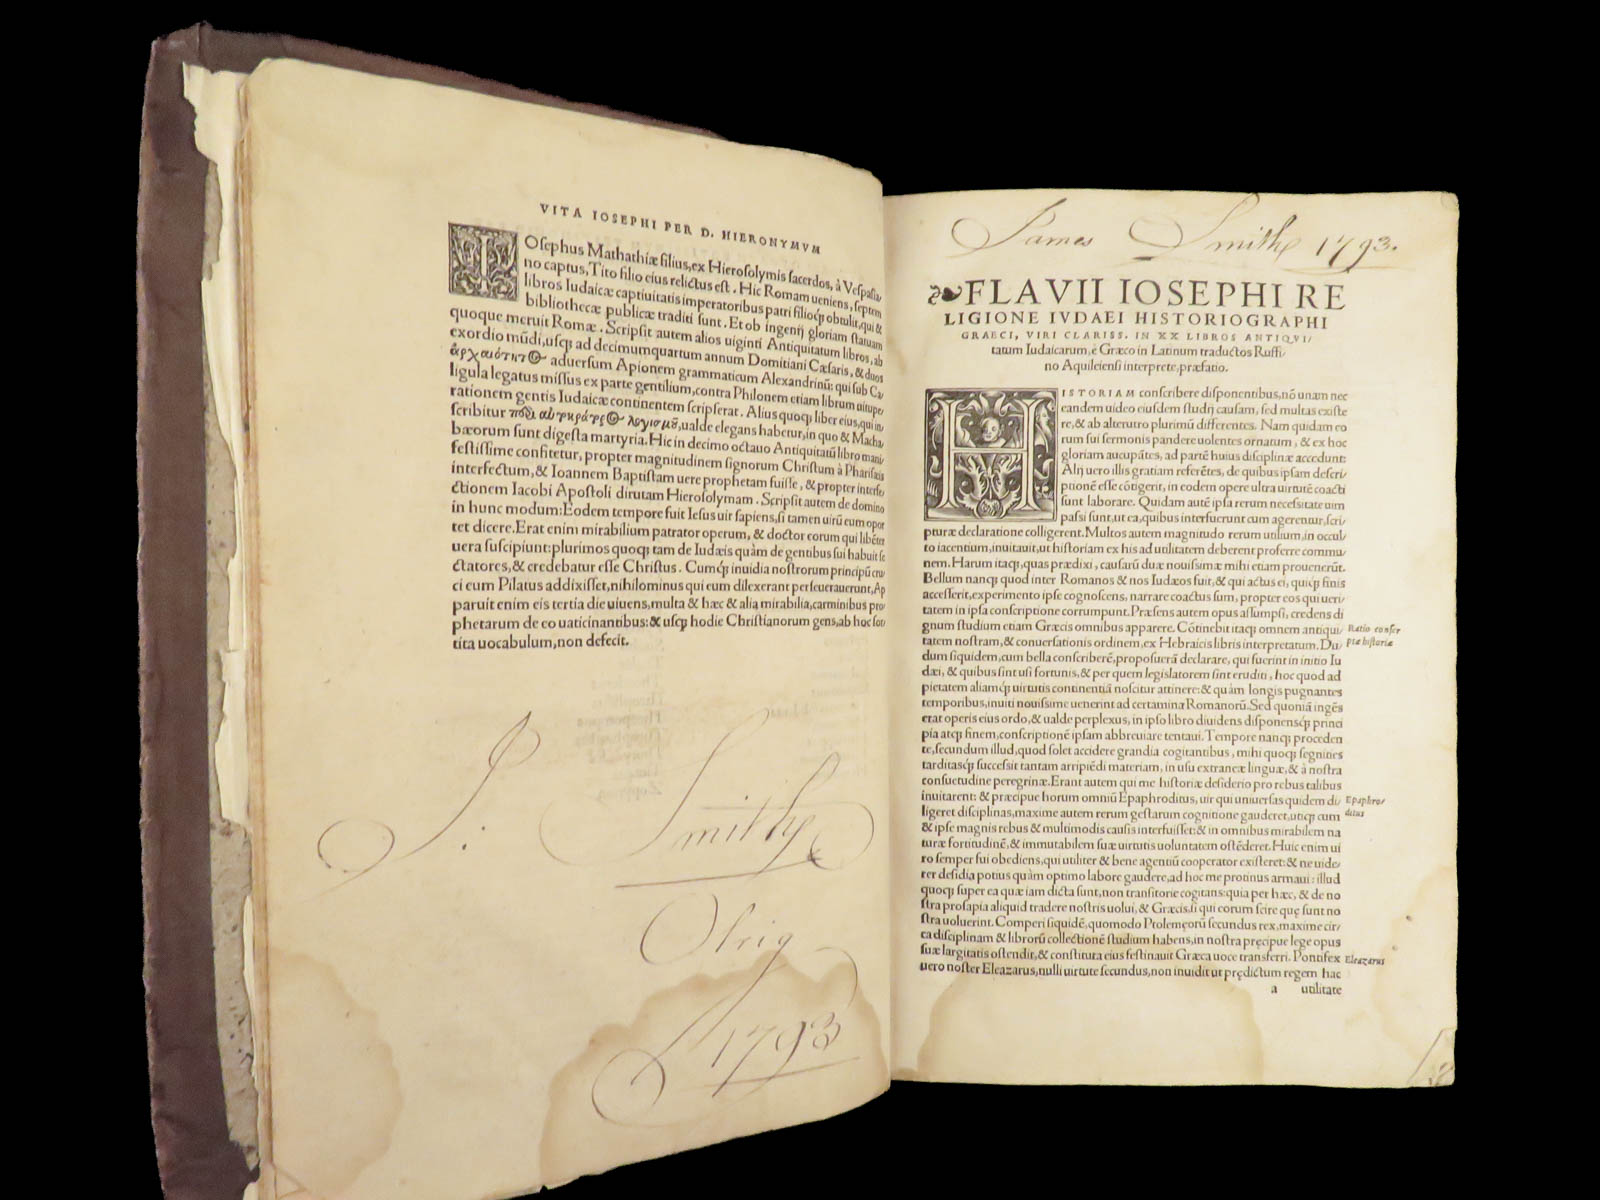 VITA IOSEPHI PER D. HIERONYMVM
IOſephus Mathathiæ filius, ex Hieroſolymis ſacerdos, à Veſpaſia/
no captus, Tito filio eius relictus eſt. Hic Romam ueniens, ſeptem
libros Iudaicæ captiuitatis imperatoribus patri filioq́ꝫ obtulit, qui &
bibliothecæ publicæ traditi ſunt. Et ob ingenij gloriam ſtatuam
quoque meruit Romæ. Scripſit autem alios uiginti Antiquitatum libros, ab
exordio mūdi, uſqꝫ ad decimumquartum annum Domitiani Cæſaris, & duos
ἀρχαιότητος aduerſum Apionem grammaticum Alexandrinū: qui ſub Ca/
ligula legatus miſſus ex parte gentilium, contra Philonem etiam librum uitupe/
rationem gentis Iudaicæ continentem ſcripſerat. Alius quoqꝫ liber eius, qui in/
ſcribitur αὐτοκράτορος λογισμοῦ, ualde elegans habetur, in quo & Macha/
bæorum ſunt digeſta martyria. Hic in decimo octauo Antiquitatū libro mani/
feſtiſſime confitetur, propter magnitudinem ſignorum Chriſtum à Phariſæis
interfectum, & Ioannem Baptiſtam uere prophetam fuiſſe, & propter interfe/
ctionem Iacobi Apoſtoli dirutam Hieroſolymam. Scripſit autem de domino
in hunc modum: Eodem tempore fuit Ieſus uir ſapiens, ſi tamen uirū eum opor
tet dicere. Erat enim mirabilium patrator operum, & doctor eorum qui libēter
uera ſuſcipiunt: plurimos quoqꝫ tam de Iudæis quàm de gentibus ſui habuit ſe
ctatores, & credebatur eſſe Chriſtus. Cumq́ꝫ inuidia noſtrorum principū cru/
ci eum Pilatus addixiſſet, nihilominus qui eum dilexerant perſeuerauerunt, Ap
paruit enim eis tertia die uiuens, multa & hæc & alia mirabilia, carminibus pro/
phetarum de eo uaticinantibus: & uſqꝫ hodie Chriſtianorum gens, ab hoc ſor/
tita uocabulum, non defecit.
J. Smith
Olrig
1793
James Smith 1793.
FLAVII IOSEPHI RE
LIGIONE IVDAEI HISTORIOGRAPHI
GRAECI, VIRI CLARISS. IN XX LIBROS ANTIQVI/
tatum Iudaicarum, è Græco in Latinum traductos Ruffi/
no Aquileienſi interprete, præfatio.
HISTORIAM conſcribere diſponentibus, nō unam nec
eandem uideo eiuſdem ſtudij cauſam, ſed multas exiſte
re, & ab alterutro plurimū differentes. Nam quidam eo
rum ſui ſermonis pandere uolentes ornatum, & ex hoc
gloriam aucupātes, ad partē huius diſciplinæ accedunt:
Alij uero illis gratiam referētes, de quibus ipſam deſcri/
ptionē eſſe cōtigerit, in eodem opere ultra uirtutē coacti
ſunt laborare. Quidam autē ipſa rerum neceſſitate uim
paſſi ſunt, ut ea, quibus interfuerunt cum agerentur, ſcri/
pturæ declaratione colligerent. Multos autem magnitudo rerum utilium, in occul/
to iacentium, inuitauit, ut hiſtoriam ex his ad utilitatem deberent proferre commu/
nem. Harum itaqꝫ, quas prædixi, cauſarū duæ nouiſſimæ mihi etiam prouenerūt.
Bellum nanqꝫ quod inter Romanos & nos Iudæos fuit, & qui actus ei, quiq́ꝫ finis
acceſſerit, experimento ipſe cognoſcens, narrare coactus ſum, propter eos qui ueri/
tatem in ipſa conſcriptione corrumpunt. Præſens autem opus aſſumpſi, credens di
gnum ſtudium etiam Græcis omnibus apparere. Cōtinebit itaqꝫ omnem antiqui/
tatem noſtram, & conuerſationis ordinem, ex Hebraicis libris interpretatum. Du/
dum ſiquidem, cum bella conſcriberē, propoſueram̄ declarare, qui fuerint in initio Iu
dæi, & quibus ſint uſi fortunis, & per quem legiſlatorem ſint eruditi, hoc quod ad
pietatem aliamq́ꝫ uirtutis continentiā noſcitur attinere: & quàm longis pugnantes
temporibus, inuiti nouiſſime uenerint ad certamina Romanorū. Sed quoniā ingēs
erat operis eius ordo, & ualde perplexus, in ipſo libro diuidens diſponensq́ꝫ princi
pia atqꝫ finem, conſcriptionē ipſam abbreuiare tentaui. Tempore nanqꝫ proceden
te, ſecundum illud, quod ſolet accidere grandia cogitantibus, mihi quoqꝫ ſegnities
tarditasq́ꝫ ſucceſſit tantam arripiēdi materiam, in uſu extraneæ linguæ, & à noſtra
conſuetudine peregrinæ. Erant autem qui me hiſtoriæ deſiderio pro rebus talibus
inuitarent: & præcipue horum omniū Epaphroditus, uir qui uniuerſas quidem di/
ligeret diſciplinas, maxime autem rerum geſtarum cognitione gauderet, utiqꝫ cum
& ipſe magnis rebus & multimodis cauſis interfuiſſet: & in omnibus mirabilem na
turæ fortitudinē, & immutabilem ſuæ uirtutis uoluntatem oſtēderet. Huic enim ui
ro ſemper fui obediens, qui utiliter & bene agentiū cooperator exiſteret: & ne uide/
rer deſidia potius quàm optimo labore gaudere, ad hoc me protinus armaui: illud
quoqꝫ ſuper ea quæ iam dicta ſunt, non tranſitorie cogitans: quia per hæc, & de no
ſtra proſapia aliquid tradere noſtris uolui, & Græcis, ſi qui eorum ſcire quę ſunt no
ſtra uoluerint. Comperi ſiquidē, quomodo Ptolemęorū ſecundus rex, maxime cir/
ca diſciplinam & librorū collectionē ſtudium habens, in noſtra pręcipue lege opus
ſuæ largitatis oſtendit, & conſtituta eius feſtinauit Græca uoce transferri. Pontifex
uero noſter Eleazarus, nulli uirtute ſecundus, non inuidit ut prędictum regem hac
a utilitate
Ratio conſcr
ptæ hiſtoriæ
Epaphro/
ditus
Eleazarus